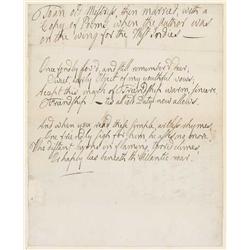 To an old Mistress then married, with a
Copy of Poems when the Author was
on the wing for the West Indies —
Once fondly lov'd, and still remember'd dear,
Sweet early Object of my youthful vows,
Accept this mark of Friendship, warm, sincere
Friendship — 'tis all cold Duty now allows.
And when you read these simple, artless rhymes,
One friendly sigh for him, he asks no more,
Who distant burns in flaming, torrid climes,
Or haply lies beneath th' Atlantic roar.